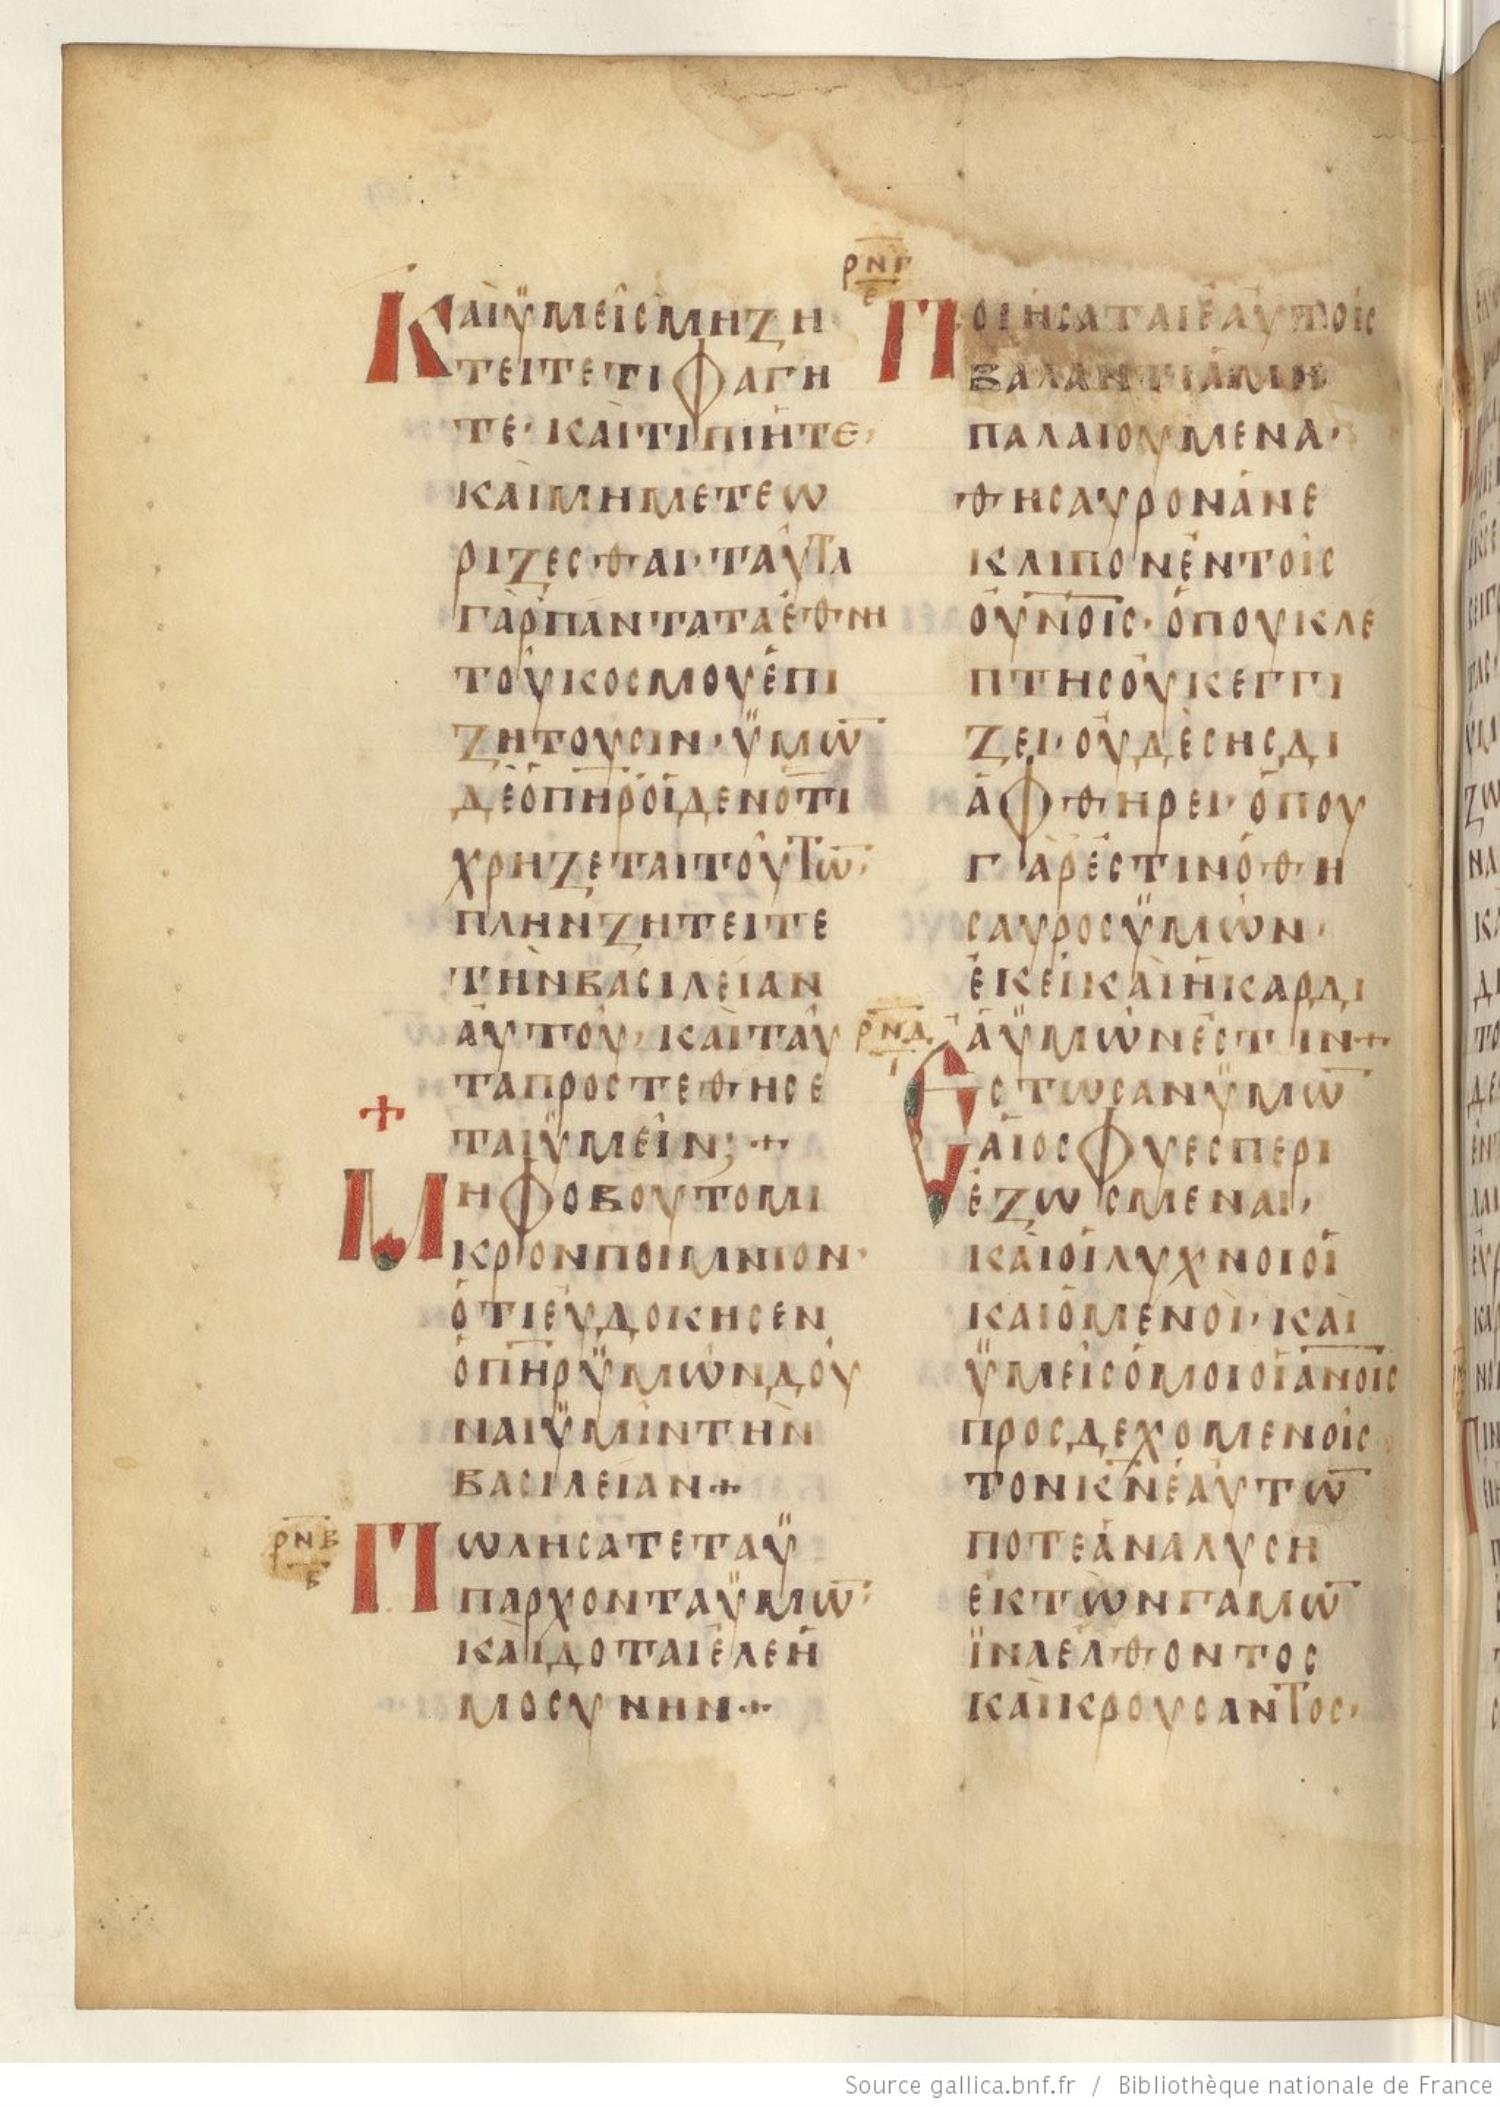 ΚΑΙΫΜΕΙϹΜΗΖΗ
ΤΕΙΤΕΤΙΦΑΓΗ
ΤΕ· ΚΑΙΤΙΠΙΗΤΕ·
ΚΑΙΜΗΜΕΤΕΩ
ΡΙΖΕϹΘΑΙ· ΤΑΥΤΑ
ΓΑΡΠΑΝΤΑΤΑΕΘΝΗ
ΤΟΥΚΟϹΜΟΥΕΠΙ
ΖΗΤΟΥϹΙΝ· ΫΜΩ̅
ΔΕΟΠΗ̅ΡΟΙΔΕΝΟΤΙ
ΧΡΗΖΕΤΑΙΤΟΥΤΩ̅·
ΠΛΗΝΖΗΤΕΙΤΕ
ΤΗΝΒΑϹΙΛΕΙΑΝ
ΑΥΤΟΥ· ΚΑΙΤΑΥ
ΤΑΠΡΟϹΤΕΘΗϹΕ
ΤΑΙΫΜΕΙΝ; +
+
ΜΗΦΟΒΟΥΤΟΜΙ
ΚΡΟΝΠΟΙΜΝΙΟΝ·
ΟΤΙΕΥΔΟΚΗϹΕΝ
ΟΠΗ̅ΡΫΜΩΝΔΟΥ
ΝΑΙΫΜΙΝΤΗΝ
ΒΑϹΙΛΕΙΑΝ+
ΡΝΒ
Β
ΠΩΛΗϹΑΤΕΤΑΫ
ΠΑΡΧΟΝΤΑΫΜΩ̅·
ΚΑΙΔΟΤΑΙΕΛΕΗ
ΜΟϹΥΝΗΝ+
ΡΝΓ
Ε
ΠΟΙΗϹΑΤΑΙΕΑΥΤΟΙϹ
ΒΑΛΑΝΤΙΑΜΗ
ΠΑΛΑΙΟΥΜΕΝΑ·
ΘΗϹΑΥΡΟΝΑΝΕ
ΚΛΙΠΟΝΕΝΤΟΙϹ
ΟΥΝ̅Ο̅ΙϹ· ΟΠΟΥΚΛΕ
ΠΤΗϹΟΥΚΕΓΓΙ
ΖΕΙ· ΟΥΔΕϹΗϹΔΙ
ΑΦΘΗΡΕΙ· ΟΠΟΥ
ΓΑΡΕϹΤΙΝΟΘΗ
ϹΑΥΡΟϹΫΜΩΝ·
ΕΚΕΙΚΑΙΗΚΑΡΔΙ
ΑΫΜΩΝΕϹΤΙΝ+
ΡΝΔ
Ι
ΕϹΤΩϹΑΝΫΜΩ̅
ΑΙΟϹΦΥΕϹΠΕΡΙ
ΕΖΩϹΜΕΝΑΙ·
ΚΑΙΟΙΛΥΧΝΟΙΟΙ
ΚΑΙΟΜΕΝΟΙ· ΚΑΙ
ΫΜΕΙϹΟΜΟΙΟΙΑ̅Ν̅Ο̅ΙϹ
ΠΡΟϹΔΕΧΟΜΕΝΟΙϹ
ΤΟΝΚ̅Ν̅ΕΑΥΤΩ̅
ΠΟΤΕΑΝΑΛΥϹΗ
ΕΚΤΩΝΓΑΜΩ̅
ΪΝΑΕΛΘΟΝΤΟϹ
ΚΑΙΚΡΟΥϹΑΝΤΟϹ·
Source gallica.bnf.fr / Bibliothèque nationale de France